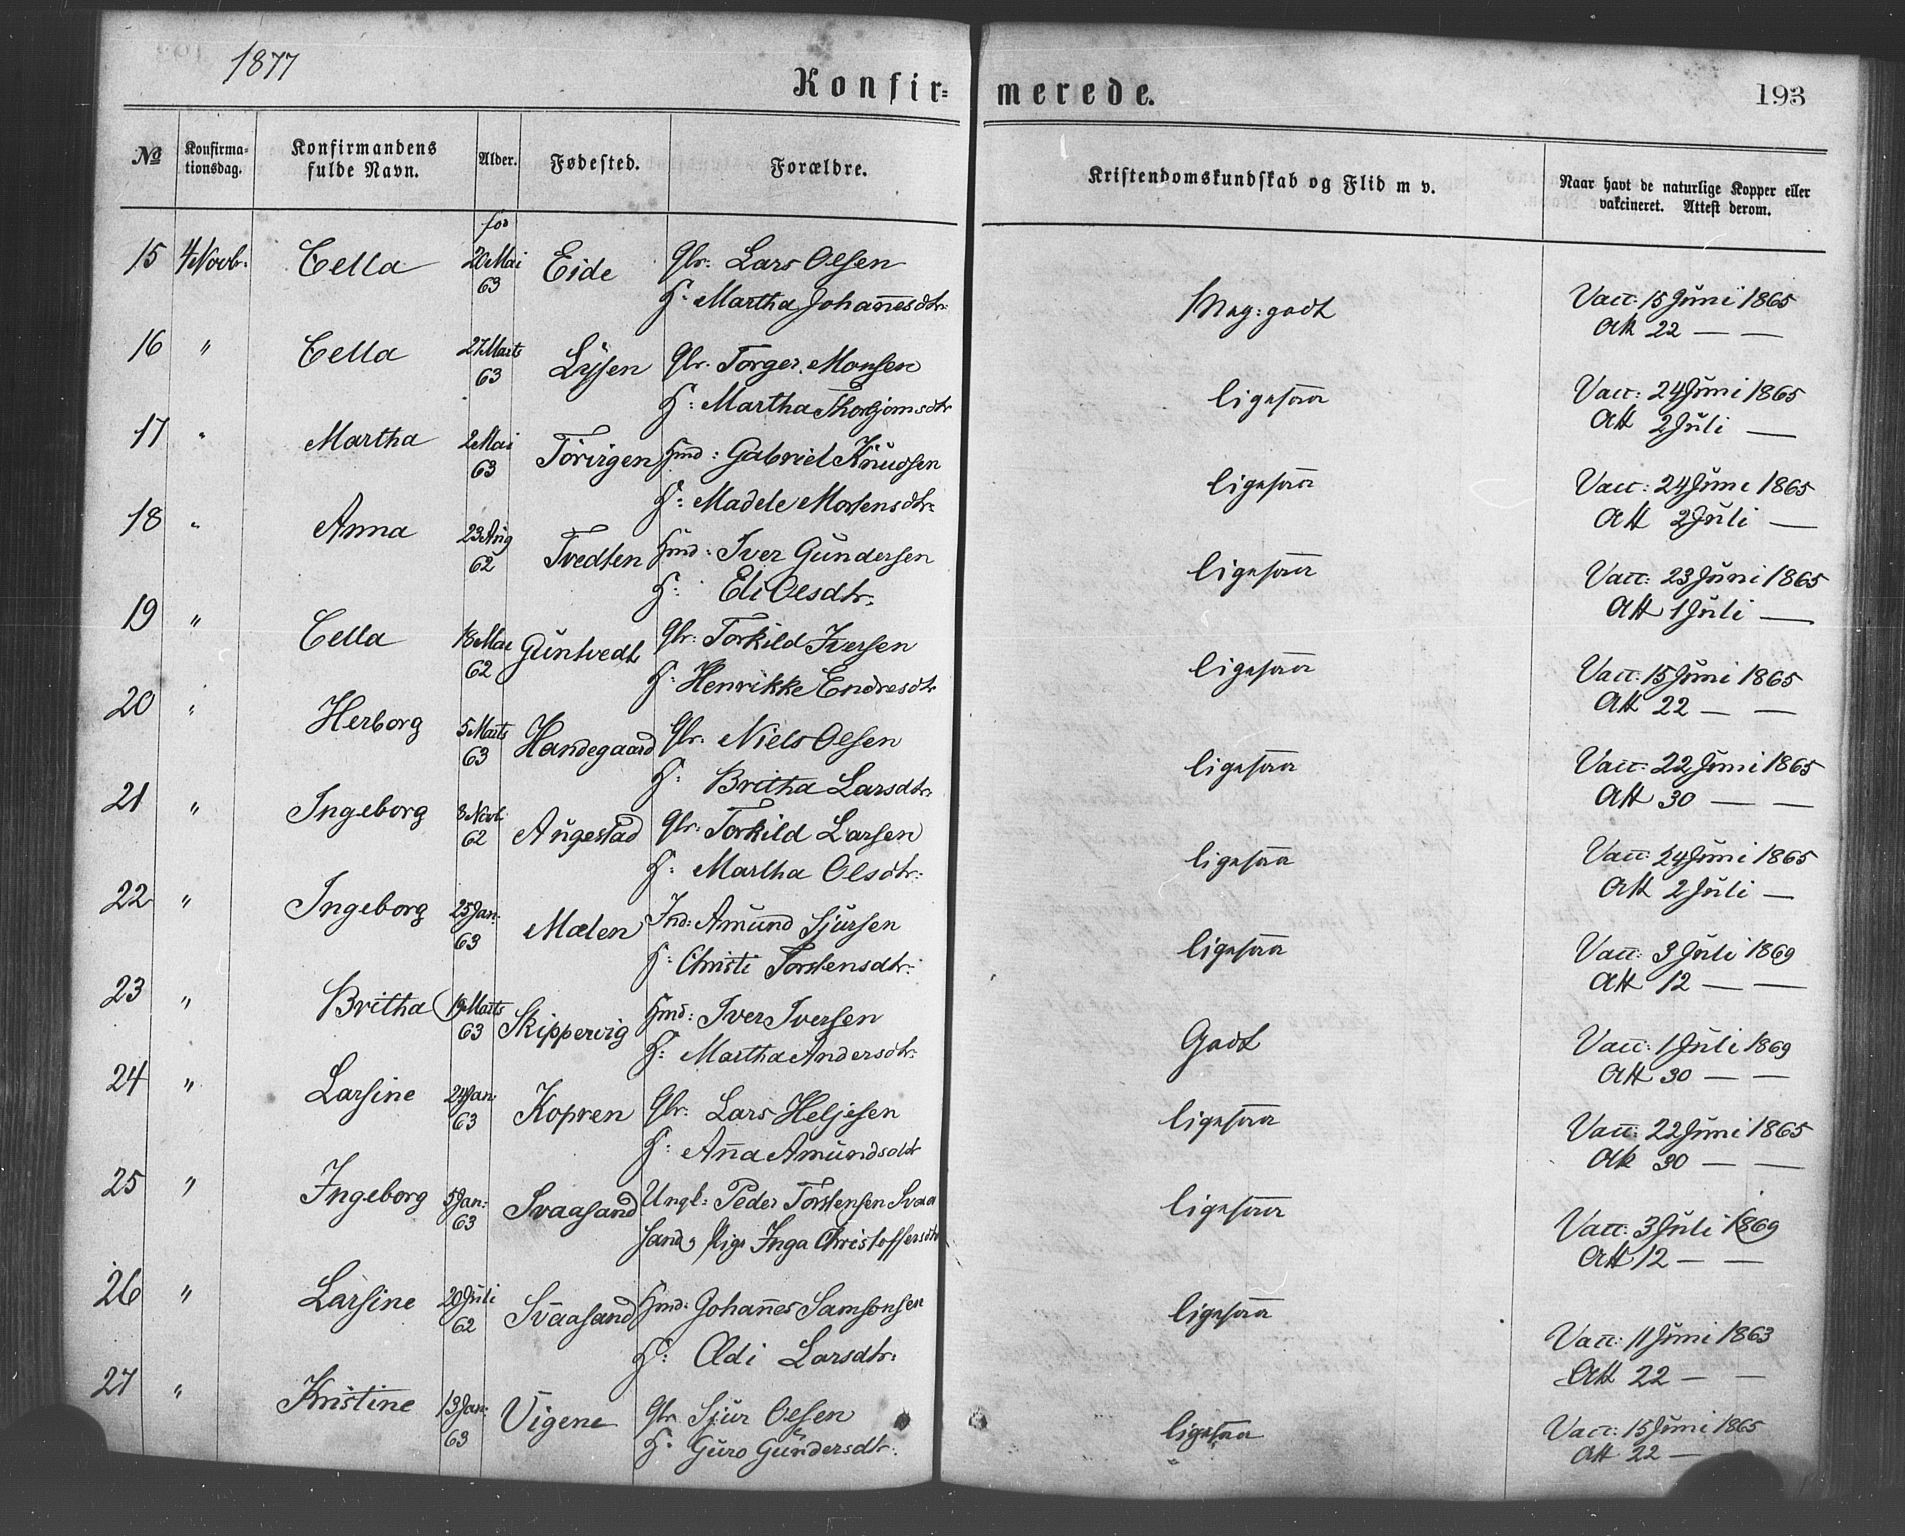 1877
Konfirmerede.
193
№ Konfirmationsdag. Konfirmandens fulde Navn. Alder. Fødested. Forældre. Kristendomskundskab og Flid m v. Naar havt de naturlige Kopper eller vakcineret. Attest derom.
fød
15 4 Novb. Cella 20 Mai 63 Eide Gbr: Lars Olsen Meg: godt Vacc: 15 Juni 1865
H: Martha Johan̄esdtr. Att 22 — —
16 " Cella 27 Marts 63 Lÿsen Gbr. Torger Monsen ligesaa Vacc: 24 Juni 1865
H: Martha Thorbjørnsdtr Att 2 Juli —
17 " Martha 2 Mai 63 Tørirgen Hmd: Gabriel Knudsen ligesaa Vacc: 24 Juni 1865
H: Madele Mortensdtr. Att 2 Juli —
18 " Anna 23 Aug 62 Tvedten Hmd: Iver Gundersen ligesaa Vacc: 23 Juni 1865
H: Eli Olsdtr. Att 1 Juli —
19 " Cella 18 Mai 62 Guntvedt Gbr: Torkild Iversen ligesaa Vacc: 15 Juni 1865
H: Henrikke Endresdtr Att 22 — —
20 " Herborg 5 Marts 63 Handegaard Gbr. Niels Olsen ligesaa Vacc: 22 Juni 1865
H: Britha Larsdtr. Att 30 — —
21 " Ingeborg 3 Novb 62 Augestad Gbr: Torkild Larsen ligesaa Vacc: 24 Juni 1865
H: Martha Olsdtr. Att 2 Juli —
22 " Ingeborg 25 Jan. 63 Mælen Ind: Amund Sjursen ligesaa Vacc: 3 Juli 1869
H: Christi Torstensdtr. Att 12 — —
23 " Britha 19 Marts 63 Skippervig Hmd: Iver Iversen Godt Vacc: 1 Juli 1869
H: Martha Andersdtr. Att 30 — —
24 " Larsine 24 Jan. 63 Kopren Gbr: Lars Heljesen ligesaa Vacc: 22 Juni 1865
H: An̄a Amundsdtr Att 30 — —
25 " Ingeborg 5 Jan: 63 Svaasand Ungk: Peder Torstensen Svaa ligesaa Vacc: 3 Juli 1869
sand, Pige Inga Christoffersdtr Att 12 — —
26 " Larsine 20 Juli 62 Svaasand Hmd: Johan̄es Samsonsen ligesaa Vacc: 11 Juni 1863
H: Oldi Larsdtr. Att 22 — —
27 " Kristine 13 Jan: 63 Vigene Gbr Sjur Olsen ligesaa Vacc: 15 Juni 1865
H: Guro Gundersdtr. Att 22 —